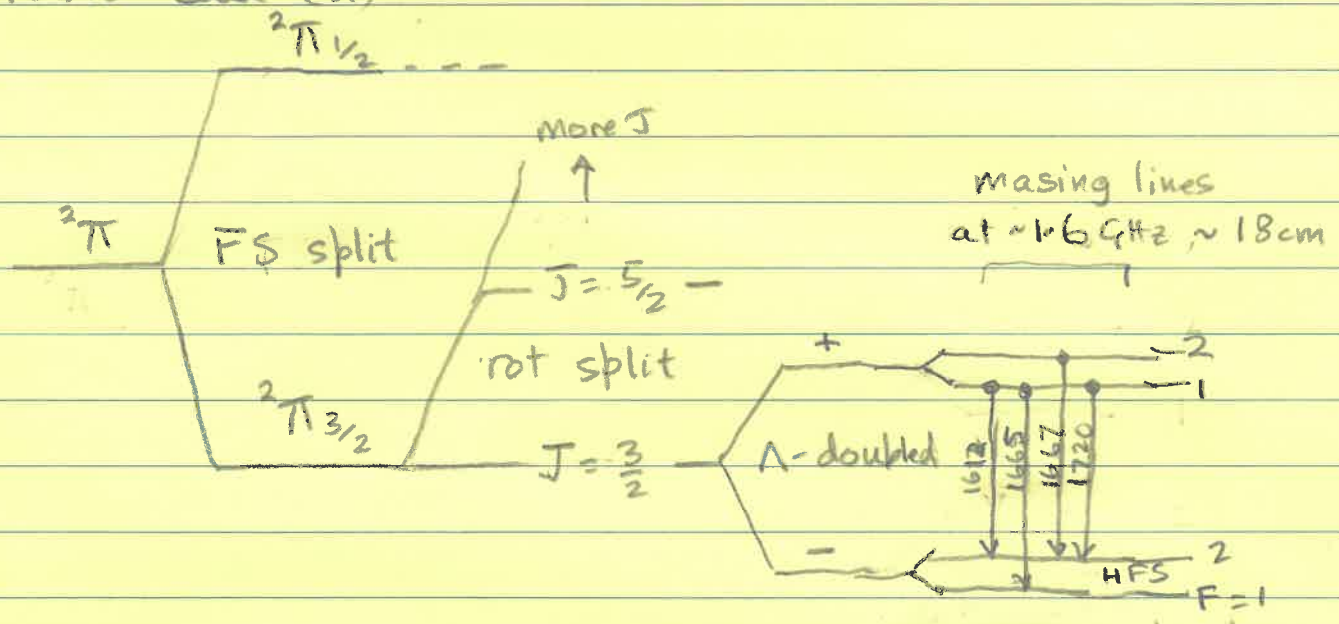 ²Π 1/2
more J
masing lines
at ~1.6 GHz, ~18cm
²Π
FS split
J = 5/2
rot split
+
2
1
²Π 3/2
J = 3/2
Λ-doubled
1612
1665
1667
1720
−
2
HFS
F=1